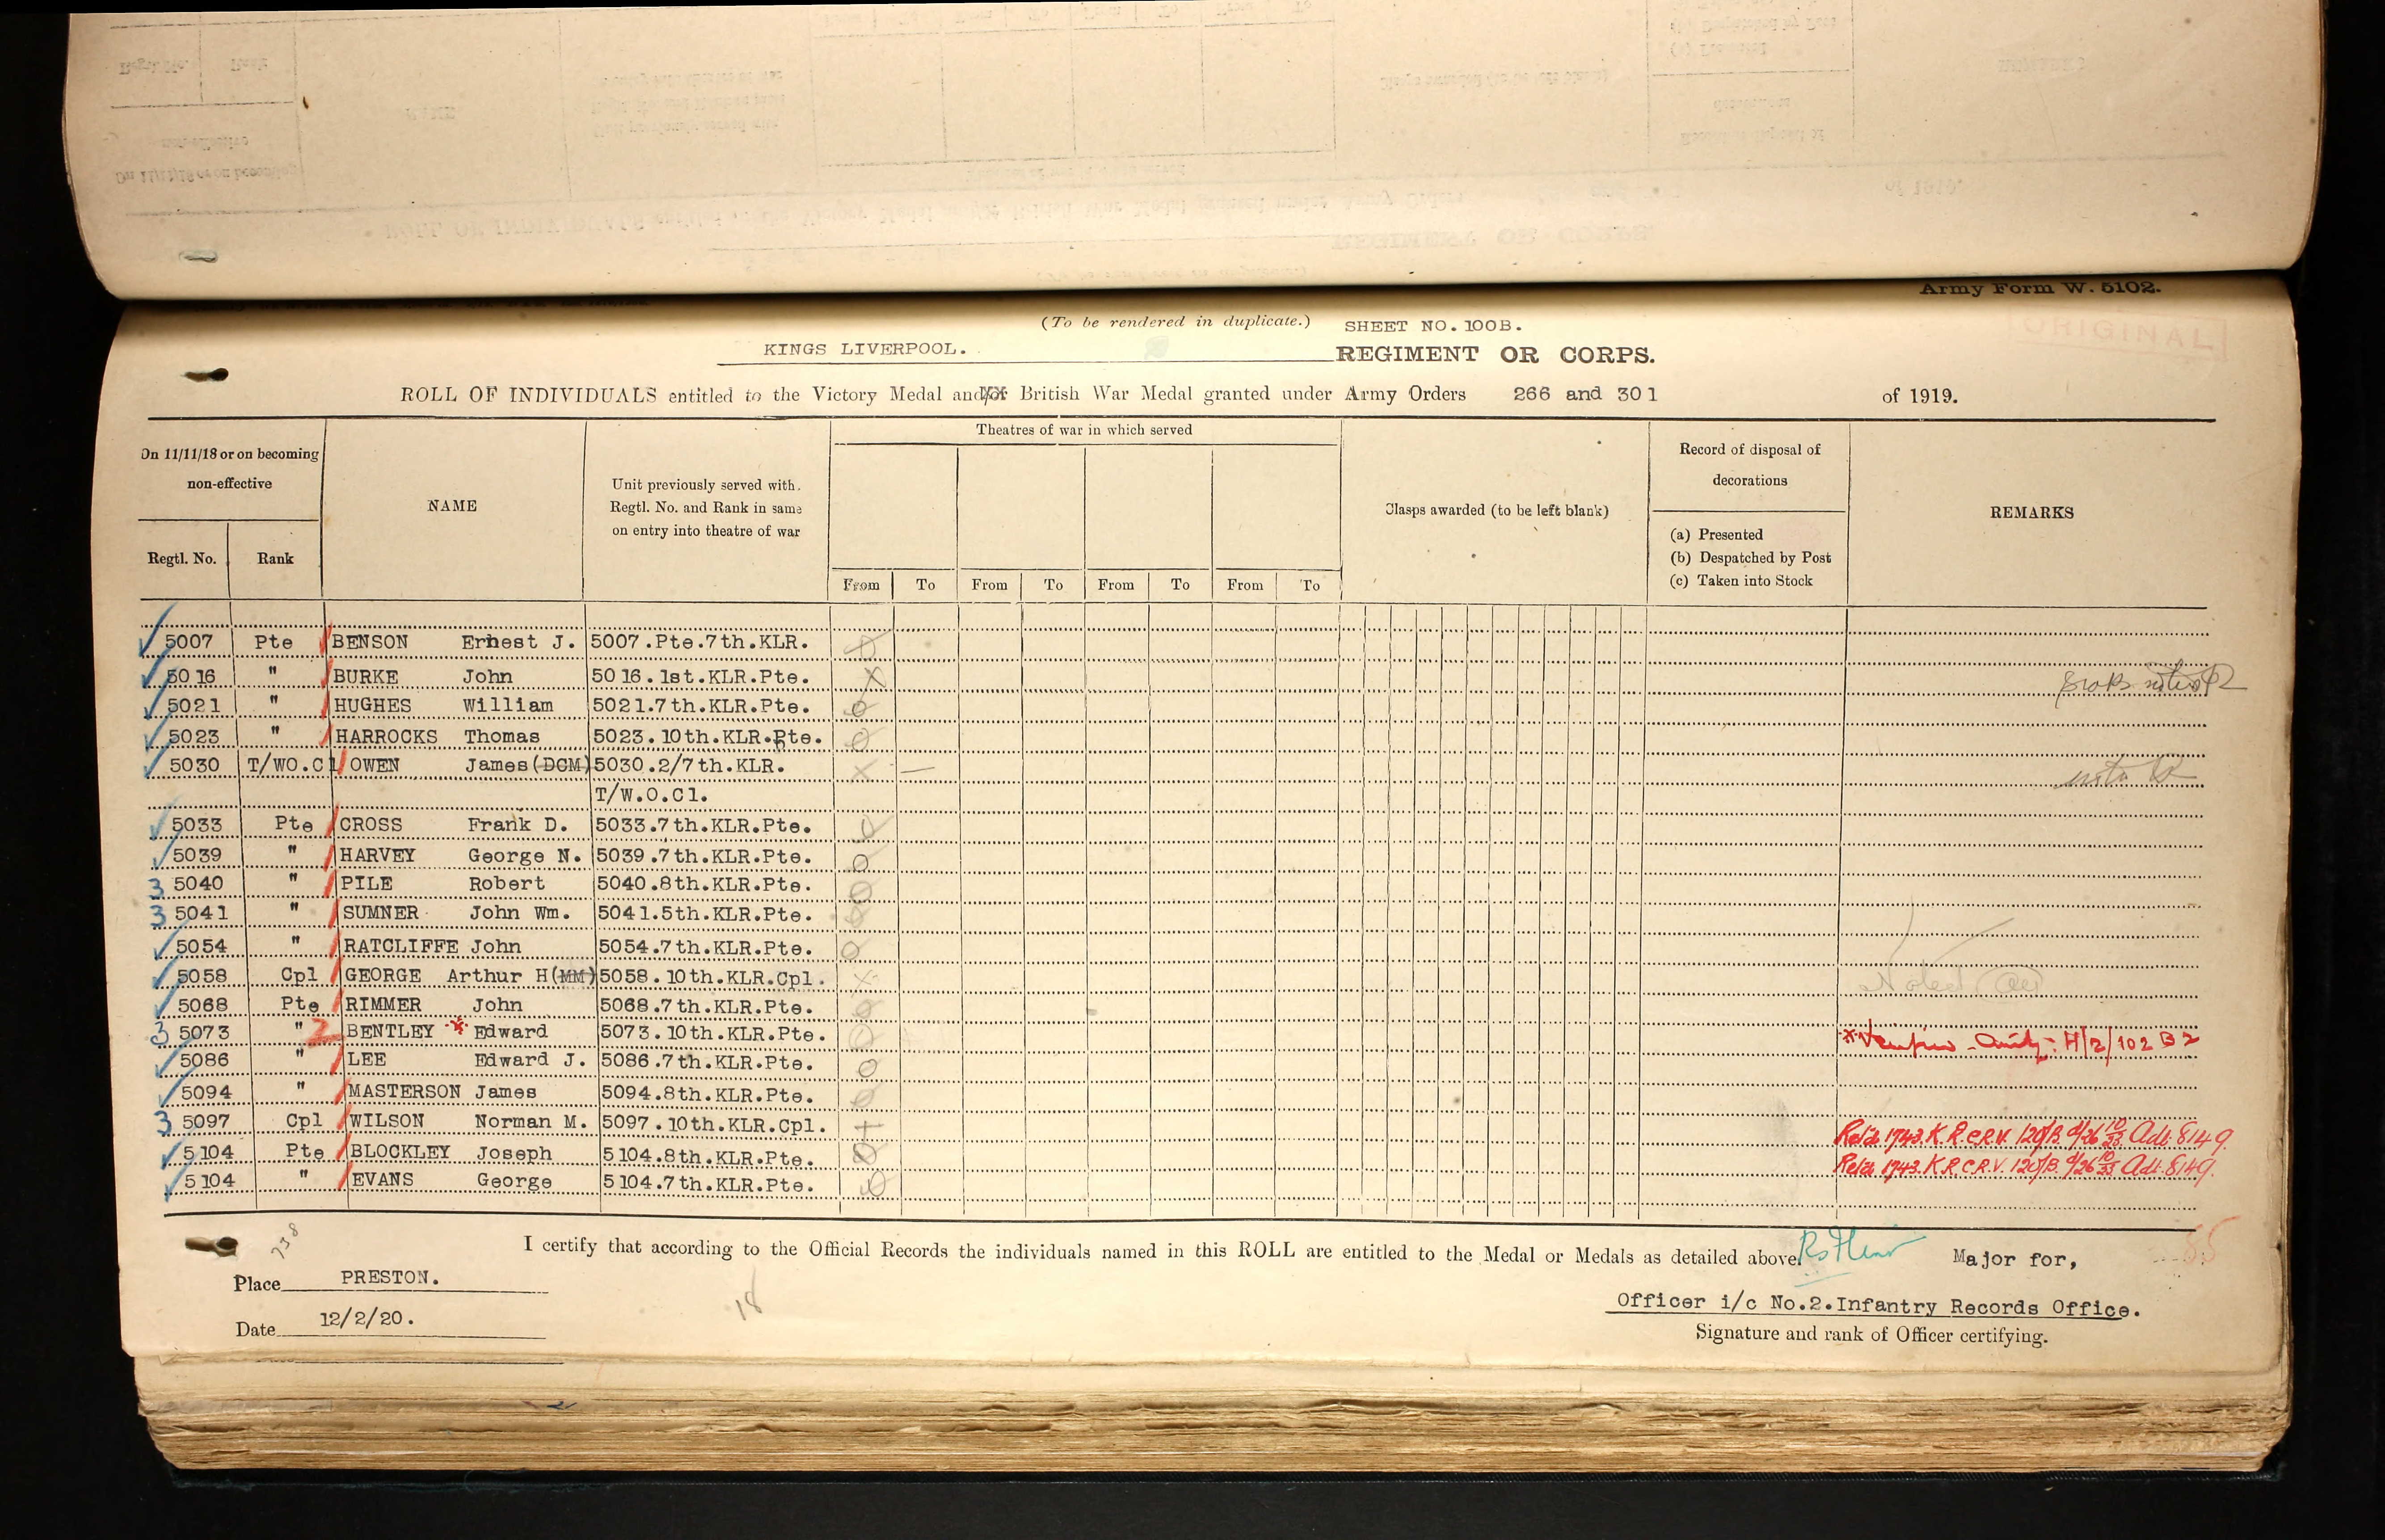 Army Form W. 5102.
(To be rendered in duplicate.) SHEET NO. 100B.
ORIGINAL
KINGS LIVERPOOL. REGIMENT OR CORPS.
ROLL OF INDIVIDUALS entitled to the Victory Medal and/or British War Medal granted under Army Orders 266 and 301 of 1919.
On 11/11/18 or on becoming non-effective
Regtl. No. Rank
NAME
Unit previously served with.
Regtl. No. and Rank in same
on entry into theatre of war
Theatres of war in which served
From To From To From To From To
Clasps awarded (to be left blank)
Record of disposal of
decorations
(a) Presented
(b) Despatched by Post
(c) Taken into Stock
REMARKS
5007 Pte BENSON Ernest J. 5007.Pte.7th.KLR.
5016 " BURKE John 5016.1st.KLR.Pte.
5021 " HUGHES William 5021.7th.KLR.Pte.
5023 " HARROCKS Thomas 5023.10th.KLR.Pte.
5030 T/WO.C1 OWEN James(DCM) 5030.2/7th.KLR.
T/W.O.C1.
5033 Pte CROSS Frank D. 5033.7th.KLR.Pte.
5039 " HARVEY George N. 5039.7th.KLR.Pte.
3 5040 " PILE Robert 5040.8th.KLR.Pte.
3 5041 " SUMNER John Wm. 5041.5th.KLR.Pte.
5054 " RATCLIFFE John 5054.7th.KLR.Pte.
5058 Cpl GEORGE Arthur H(MM) 5058.10th.KLR.Cpl. Noted
5068 Pte RIMMER John 5068.7th.KLR.Pte.
3 5073 " 2 BENTLEY * Edward 5073.10th.KLR.Pte. * H/2/102 B2
5086 " LEE Edward J. 5086.7th.KLR.Pte.
5094 " MASTERSON James 5094.8th.KLR.Pte.
3 5097 Cpl WILSON Norman M. 5097.10th.KLR.Cpl.
5104 Pte BLOCKLEY Joseph 5104.8th.KLR.Pte. 1743.K.R.C.R.V. 120/B. 8149.
5104 " EVANS George 5104.7th.KLR.Pte. 1743.K.R.C.R.V. 120/B. 8149.
738
I certify that according to the Official Records the individuals named in this ROLL are entitled to the Medal or Medals as detailed above. Major for,
Place PRESTON.
18
Officer i/c No.2.Infantry Records Office.
Date 12/2/20.
Signature and rank of Officer certifying.